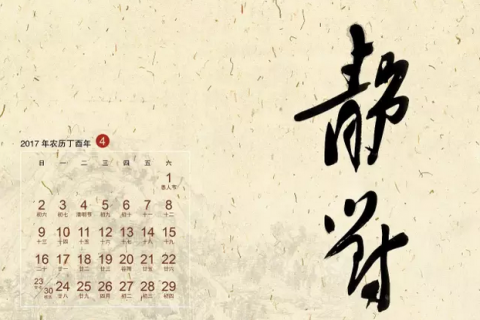 静對
2017 年农历丁酉年 4
日 一 二 三 四 五 六
1
愚人节
2 3 4 5 6 7 8
初六 初七 清明节 初九 初十 十一 十二
9 10 11 12 13 14 15
十三 十四 十五 十六 十七 十八 十九
16 17 18 19 20 21 22
二十 廿一 廿二 廿三 谷雨 廿五 廿六
23 30 24 25 26 27 28 29
廿八 廿九 初一 初二 初三 初四